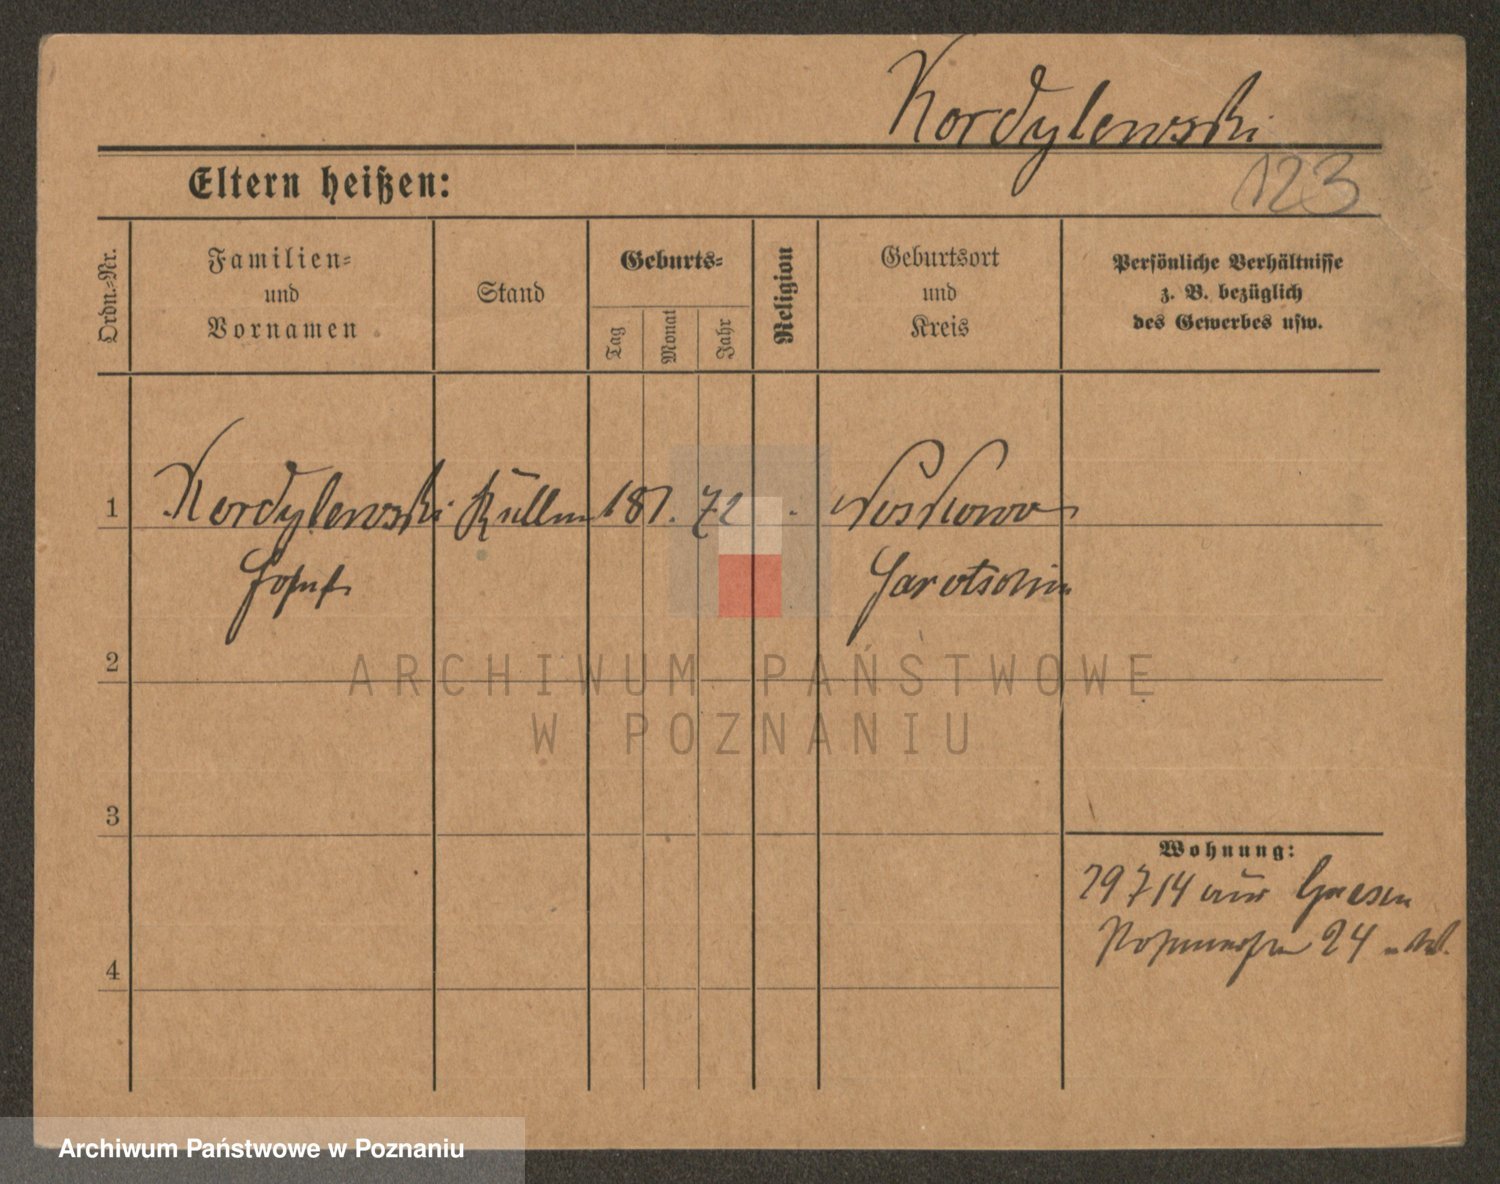 Kordylewski
123
Eltern heißen:
Ordn.=Nr.
Familien=
und
Vornamen
Stand
Geburts=
Tag
Monat
Jahr
Religion
Geburtsort
und
Kreis
Persönliche Verhältnisse
z. B. bezüglich
des Gewerbes usw.
1 Kordylewski Kelln 18 1. 72 Noskowo
Josef Jarotschin
2
ARCHIWUM PAŃSTWOWE
W POZNANIU
3
Wohnung:
29 7 14 aus Gnesen
24
4
Archiwum Państwowe w Poznaniu